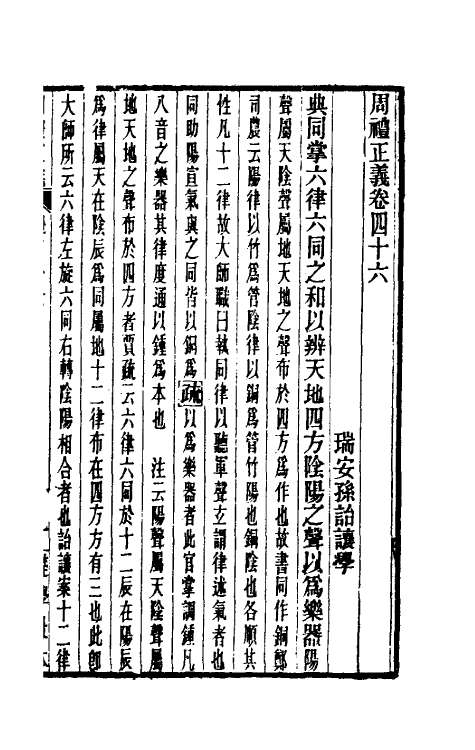 周禮正義卷四十六
瑞安孫詒讓學
典同掌六律六同之和以辨天地四方陰陽之聲以爲樂器陽
聲屬天陰聲屬地天地之聲布於四方爲作也故書同作銅鄭
司農云陽律以竹爲管陰律以銅爲管竹陽也銅陰也各順其
性凡十二律故大師職曰執同律以聽軍聲玄謂律述氣者也
同助陽宣氣與之同皆以銅爲疏以爲樂器者此官掌調鍾凡
八音之樂器其律度通以鍾爲本也 注云陽聲屬天陰聲屬
地天地之聲布於四方者賈疏云六律六同於十二辰在陽辰
爲律屬天在陰辰爲同屬地十二律布在四方方有三也此卽
大師所云六律左旋六同右轉陰陽相合者也詒讓案十二律